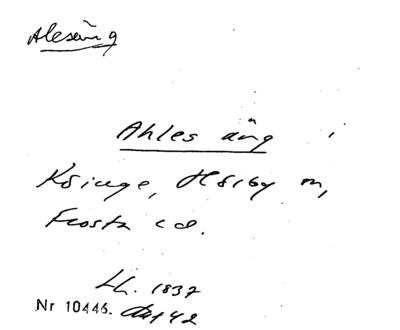 Alesäng
Ahles äng
Köinge, Hörby m,
Frosta cd.
Lh. 1837
Nr 10446. Akt 42